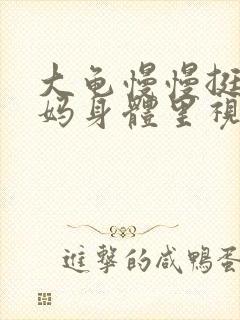 大龟慢慢挺
妈身體里視
進擊的咸鴨蛋